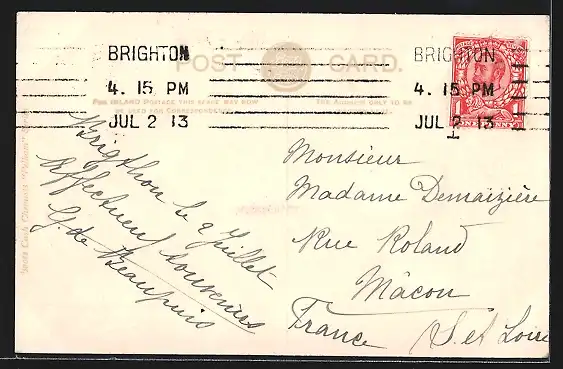 BRIGHTON
4. 15 PM
JUL 2 13
BRIGHTON
4. 15 PM
JUL 2 13
POST CARD.
FOR INLAND POSTAGE THIS SPACE MAY NOW
BE USED FOR CORRESPONDENCE.
THE ADDRESS ONLY TO BE
1 ONE PENNY 1
Brigthon le 2 Juillet
Affectueux souvenirs
G. de Beaupuis
Monsieur
Madame Demaizière
Rue Roland
Mâcon
France (S. et Loire